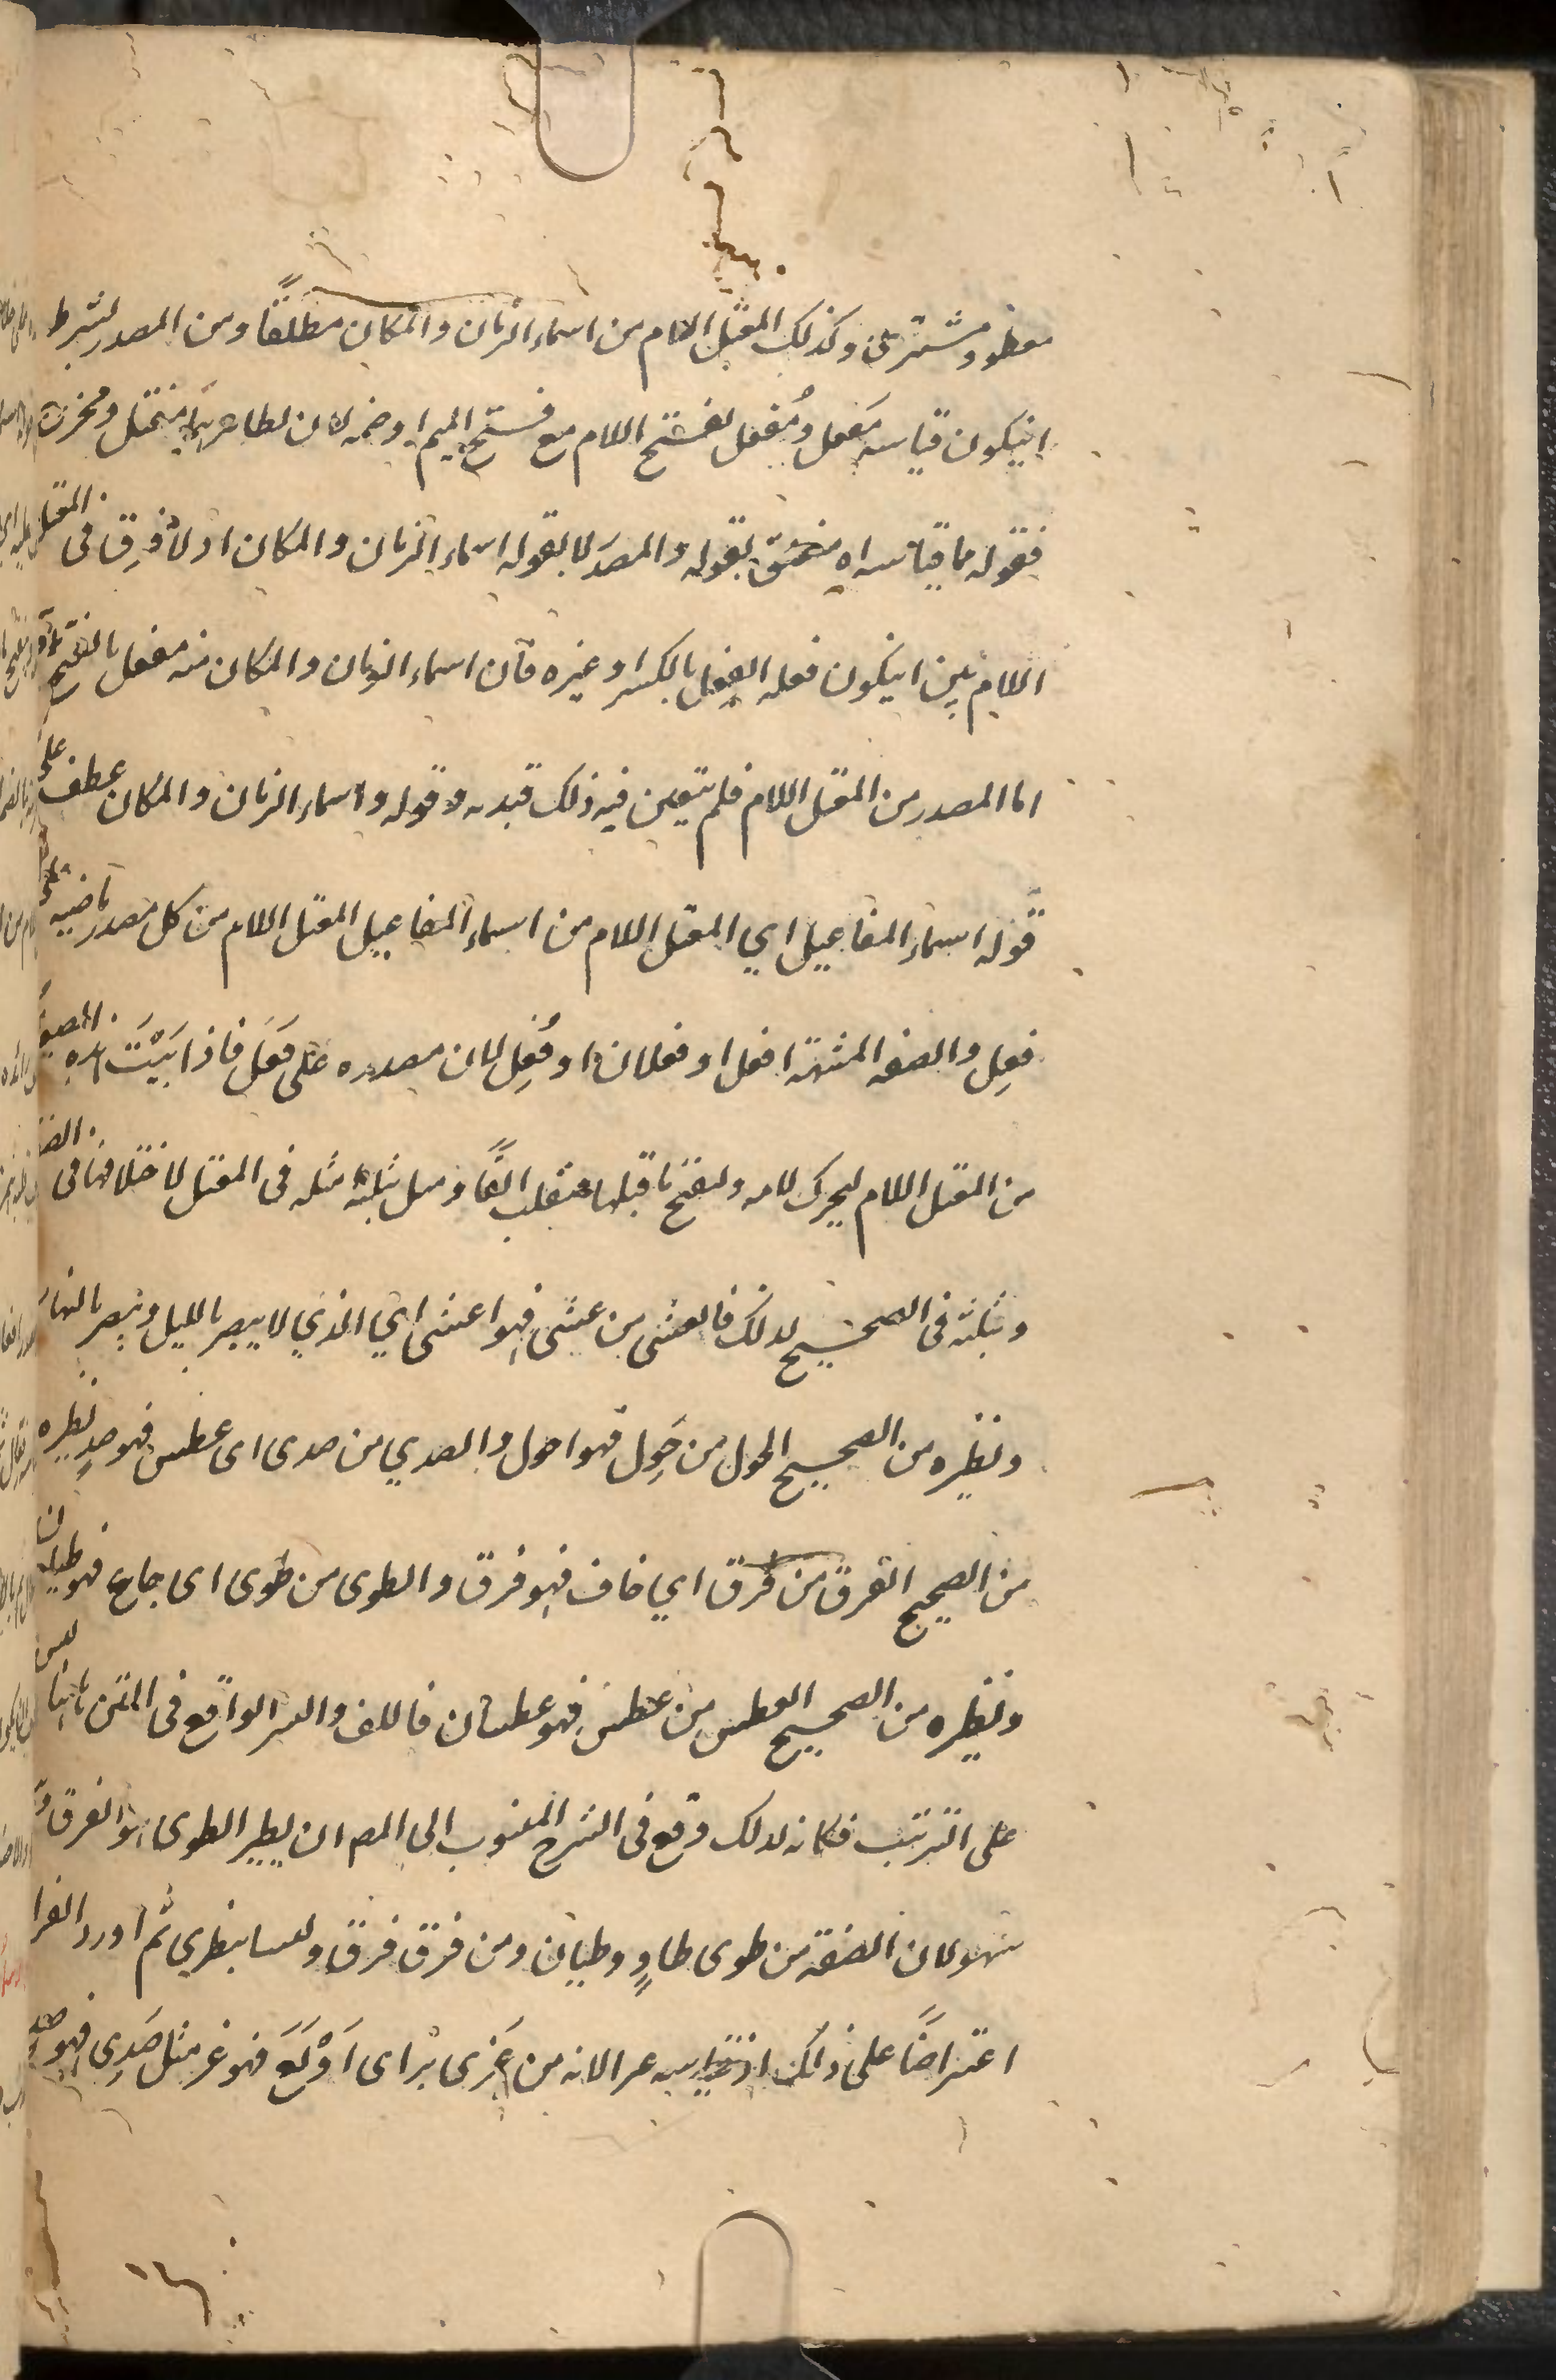 معطى ومشترى وكذلك المعتل اللام من اسماء الزمان والمكان مطلقًا ومن المصدر بشرط
ان يكون قياسه مَفعل ومُفعل بفتح اللام مع فتح الميم او ضمه لان
فقوله مما قياسه اه مختص بقوله والمصدر لا بقوله اسماء الزمان والمكان اذ لا فرق فى المعتل
اللام بين ان يكون فعله يفعِل بالكسر او غيره فان اسماء الزمان والمكان منه مفعل بالفتح
اما المصدر من المعتل اللام فلم يتعين فيه ذلك قيده وقوله واسماء الزمان والمكان عطف على
قوله اسماء المفاعيل اي المعتل اللام من اسماء المفاعيل المعتل اللام من كل مصدر ماضيه على
فعِل والصفه المشبهة افعل او فعلان او فَعِل لان مصدره على فَعَل فاذا بَنَيْتَ
من المعتل اللام يحرك لامه ويفتح ما قبلها فتقلب الفًا ومثل بثلثة امثله فى المعتل لاختلافها فى
وثلثه فى الصحيح لذلك فالعشى من عشى فهو اعشى اي الذي لا يبصر بالليل ويبصر بالنهار
ونظيره من الصحيح الحول من حَوِل فهو احول والصدي من صدى اى عطش فهو صدٍ نظيره
من الصحيح الفرق من فرق اي خاف فهو فرق والطوى من طوى اى جاع فهو طيان
ونظيره من الصحيح العطش من عطش فهو عطشان فاللف والنشر الواقع فى المتن ليس
على الترتيب فكانه لذلك وقع فى الشرح المنسوب الى المص ان نظير الطوى هو الفرق و
سهو لان الصفة من طوى طاوٍ وطيان ومن فرق فرق وليسا بنظيرين ثم اورد الغرا
اعتراضًا على ذلك اذ قياسه غرا لانه من غَرِى به اى اَوْلَعَ فهو غر مثل صَدِى فهو صدٍ